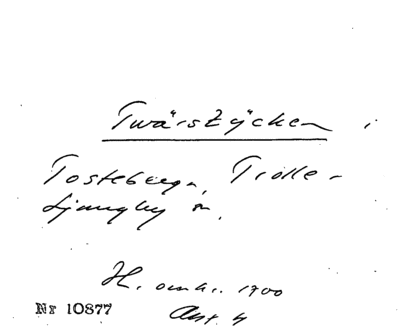 Twärstÿcken i
Tosteberga, Trolle-
Ljungby sn.
H. omkr. 1900
Nr 10877
Ant. H